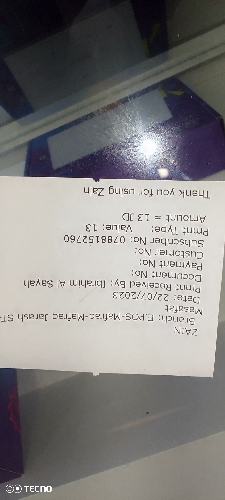 ZAIN
Branch: E.POS-Mafraq-Mafraq Jarash ST-
Masafat
Date: 22/07/2023
Print Received By: Ibrahim Al Sayah
Document No:
Payment No:
Customer No:
Subscriber No: 0798152760
Print Type: Value: 13
Amount = 13 JD
Thank you for using Zain
TECNO